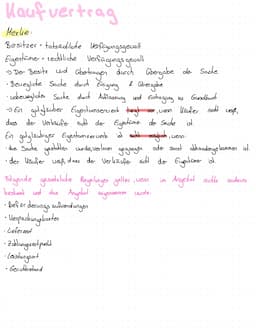 Kaufvertrag
Merke:
Besitzer = tatsächliche Verfügungsgewalt
Eigentümer = rechtliche Verfügungsgewalt
→ Der Besitz wird Übertragen durch Übergabe der Sache
• Bewegliche Sache durch Einigung & Übergabe
• unbewegliche Sache durch Auflassung und Eintragung ins Grundbuch
Ein gutgläubiger Eigentumserwerb liegt vor, wenn Käufer nicht weiß,
dass der Verkäufer nicht der Eigentümer der Sache ist
Ein gutgläubiger Eigentumserwerb ist nicht möglich, wenn:
• die Sache gestohlen wurde, verloren gegangen oder sonst abhandengekommen ist.
• der Käufer weiß, dass der Verkäufer nicht der Eigentümer ist.
Folgende gesetzliche Regelungen gelten, wenn im Angebot nichts anderes
bestimmt und das Angebot angenommen wurde:
• Beförderungsaufwendungen
• Verpackungskosten
• Lieferzeit
• Zahlungszeitpunkt
• Leistungsort
• Gerichtsstand